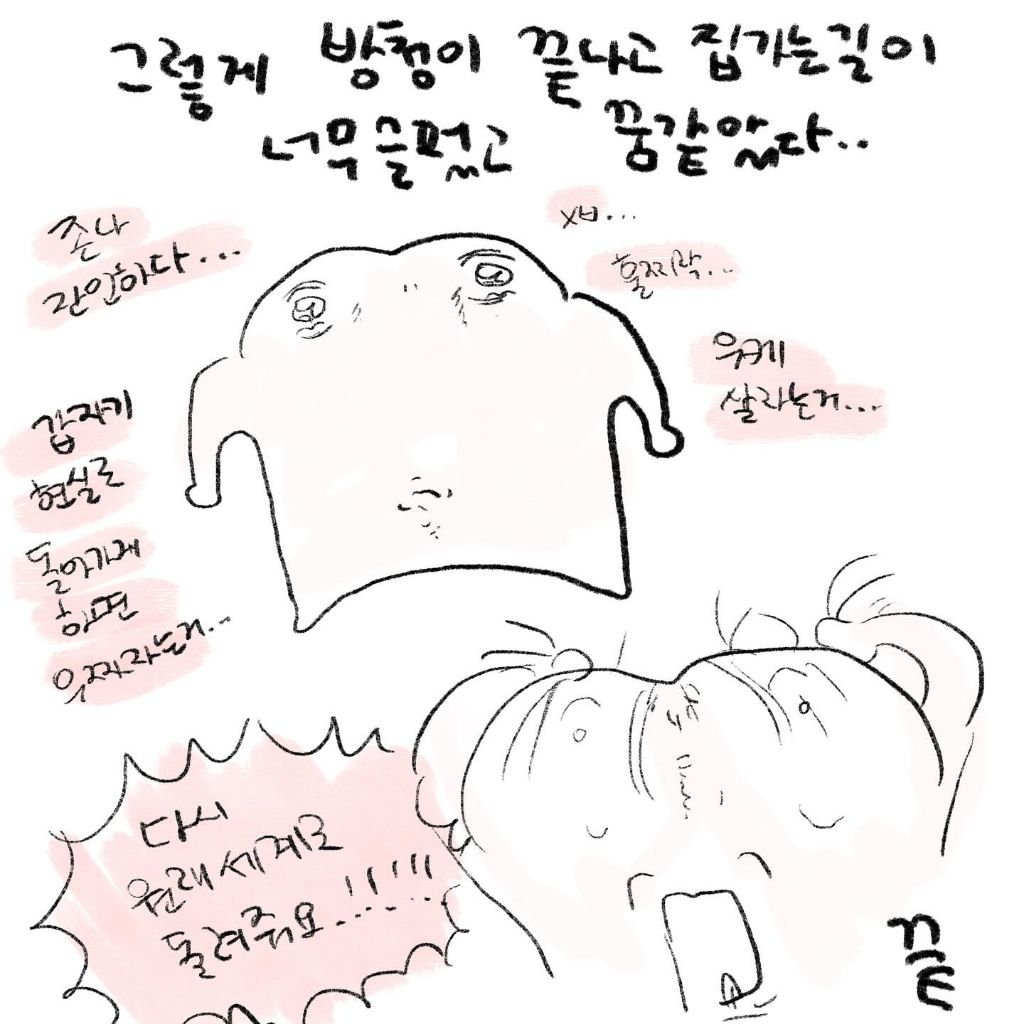 그렇게 방청이 끝나고 집가는길이
너무슬펐고 꿈같았다..
존나
잔인하다...
xㅂ...
훌쩌락...
우케
살라는거...
갑자기
현실로
돌아가게
하면
우짜라는거...
다시
원래세계로
돌려줘요...!!!!!
끝